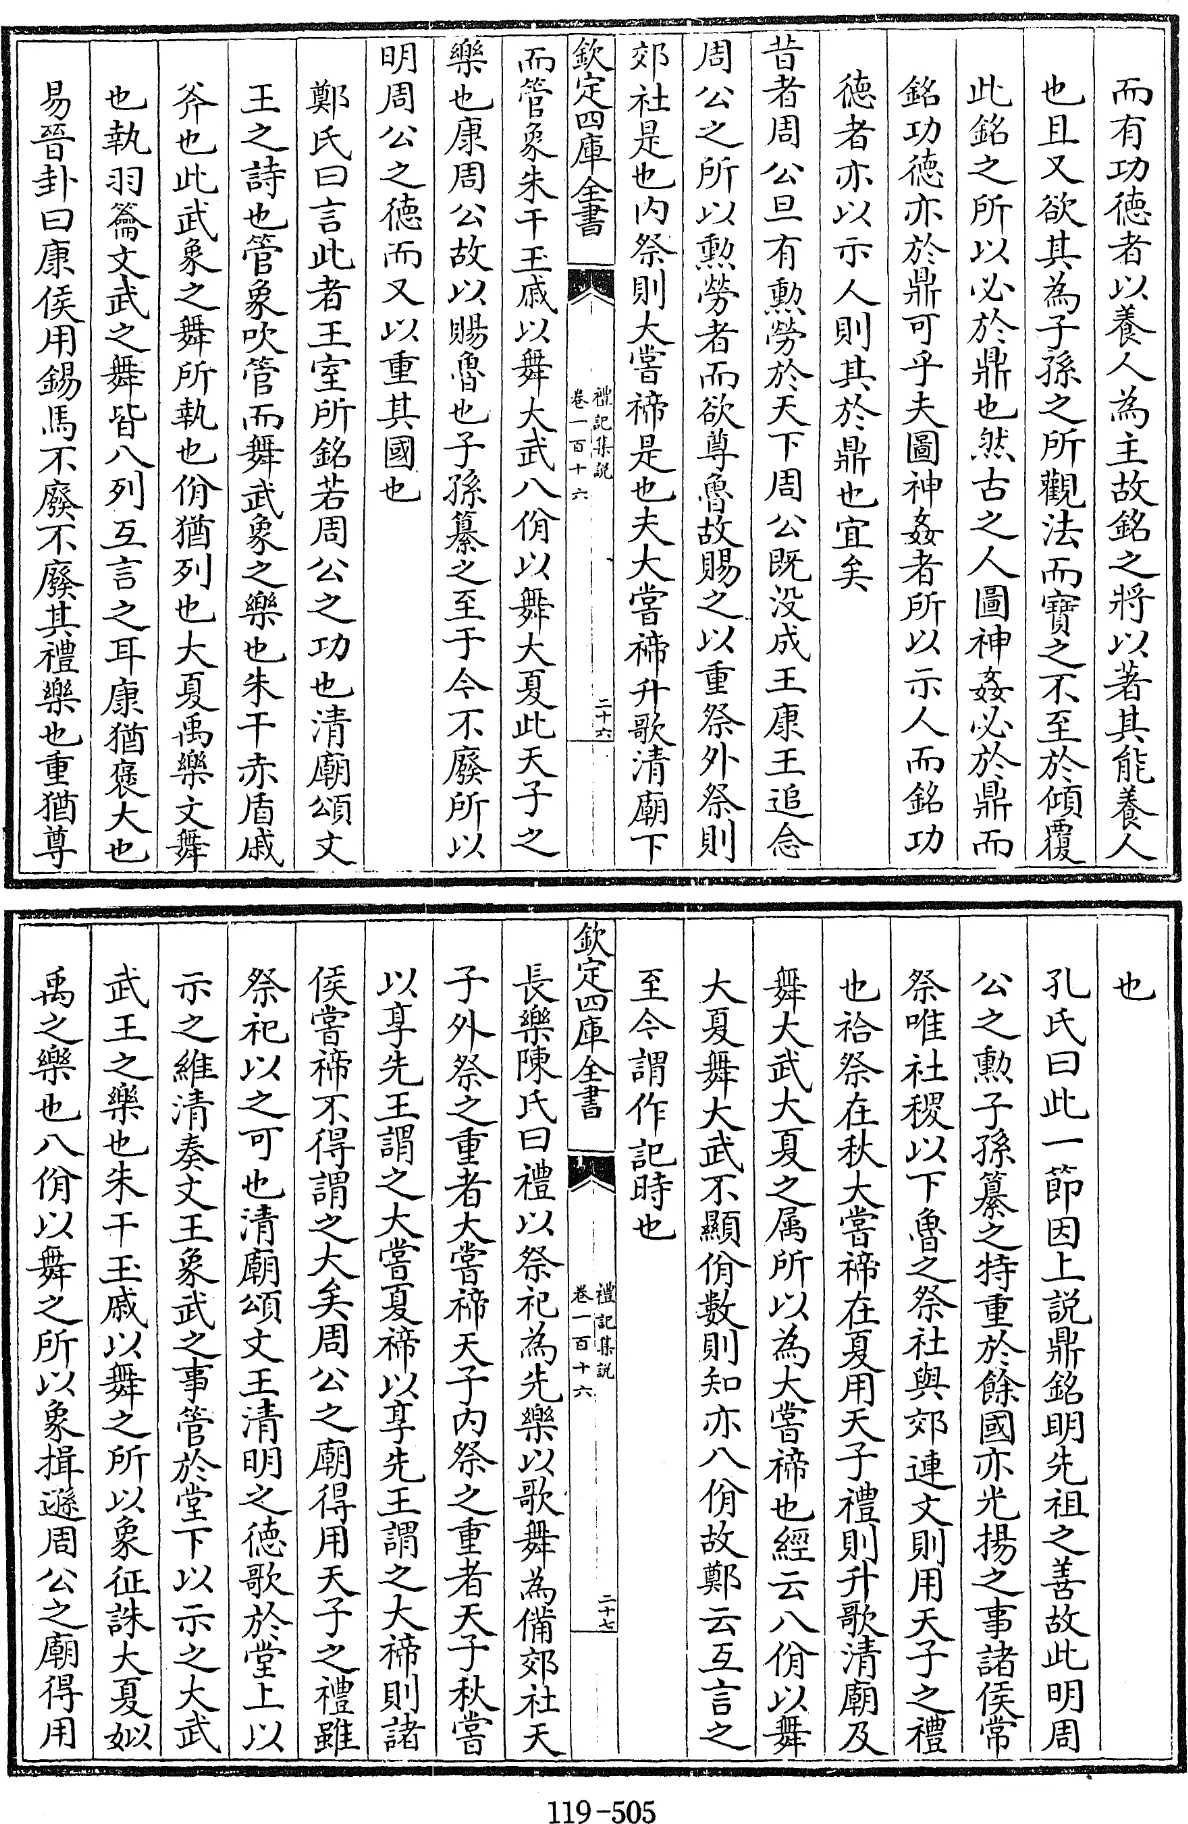 而有功德者以養人為主故銘之將以著其能養人
也且又欲其為子孫之所觀法而寶之不至於傾覆
此銘之所以必於鼎也然古之人圖神姦必於鼎而
銘功德亦於鼎可乎夫圖神姦者所以示人而銘功
德者亦以示人則其於鼎也宜矣
昔者周公旦有勲勞於天下周公既没成王康王追念
周公之所以勲勞者而欲尊魯故賜之以重祭外祭則
郊社是也内祭則大嘗禘是也夫大嘗禘升歌清廟下
欽定四庫全書
禮記集説
卷一百十六
二十六
而管象朱干玉戚以舞大武八佾以舞大夏此天子之
樂也康周公故以賜魯也子孫纂之至于今不廢所以
明周公之德而又以重其國也
鄭氏曰言此者王室所銘若周公之功也清廟頌文
王之詩也管象吹管而舞武象之樂也朱干赤盾戚
斧也此武象之舞所執也佾猶列也大夏禹樂文舞
也執羽籥文武之舞皆八列互言之耳康猶襃大也
易晉卦曰康侯用錫馬不廢不廢其禮樂也重猶尊
也
孔氏曰此一節因上説鼎銘明先祖之善故此明周
公之勲子孫纂之特重於餘國亦光揚之事諸侯常
祭唯社稷以下魯之祭社與郊連文則用天子之禮
也祫祭在秋大嘗禘在夏用天子禮則升歌清廟及
舞大武大夏之属所以為大嘗禘也經云八佾以舞
大夏舞大武不顯佾數則知亦八佾故鄭云互言之
至今謂作記時也
欽定四庫全書
禮記集説
卷一百十六
二十七
長樂陳氏曰禮以祭祀為先樂以歌舞為備郊社天
子外祭之重者大嘗禘天子内祭之重者天子秋嘗
以享先王謂之大嘗夏禘以享先王謂之大禘則諸
侯嘗禘不得謂之大矣周公之廟得用天子之禮雖
祭祀以之可也清廟頌文王清明之德歌於堂上以
示之維清奏文王象武之事管於堂下以示之大武
武王之樂也朱干玉戚以舞之所以象征誅大夏姒
禹之樂也八佾以舞之所以象揖遜周公之廟得用
119-505